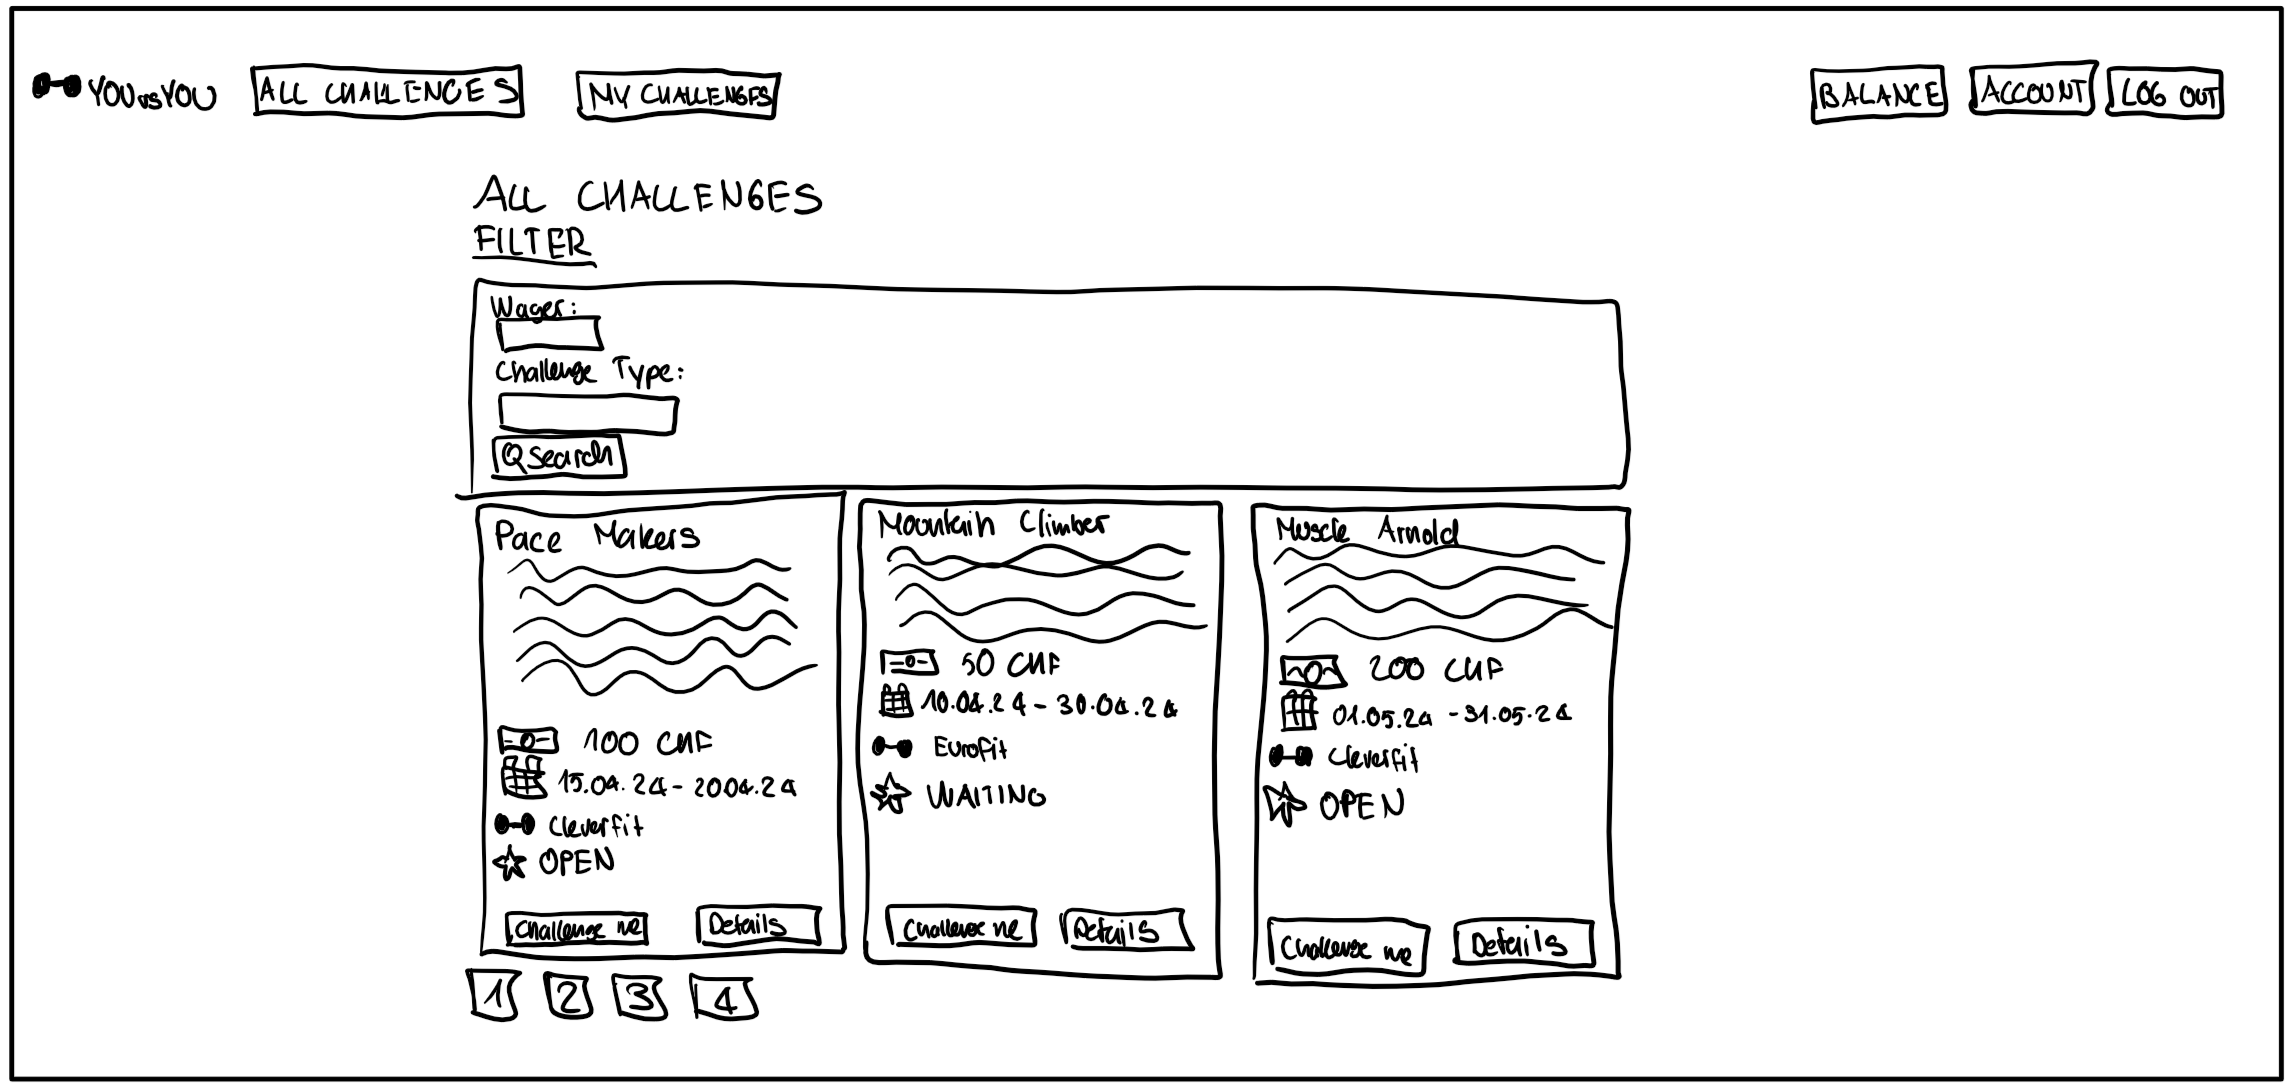 YOUvsYOU ALL CHALLENGES MY CHALLENGES BALANCE ACCOUNT LOG OUT
ALL CHALLENGES
FILTER
Wager:
Challenge Type:
Search
Pace Makers
100 CHF
15.04.24 - 20.04.24
Cleverfit
OPEN
Challenge me Details
Mountain Climber
50 CHF
10.04.24 - 30.04.24
Eurofit
WAITING
Challenge me Details
Muscle Arnold
200 CHF
01.05.24 - 31.05.24
Cleverfit
OPEN
Challenge me Details
1 2 3 4